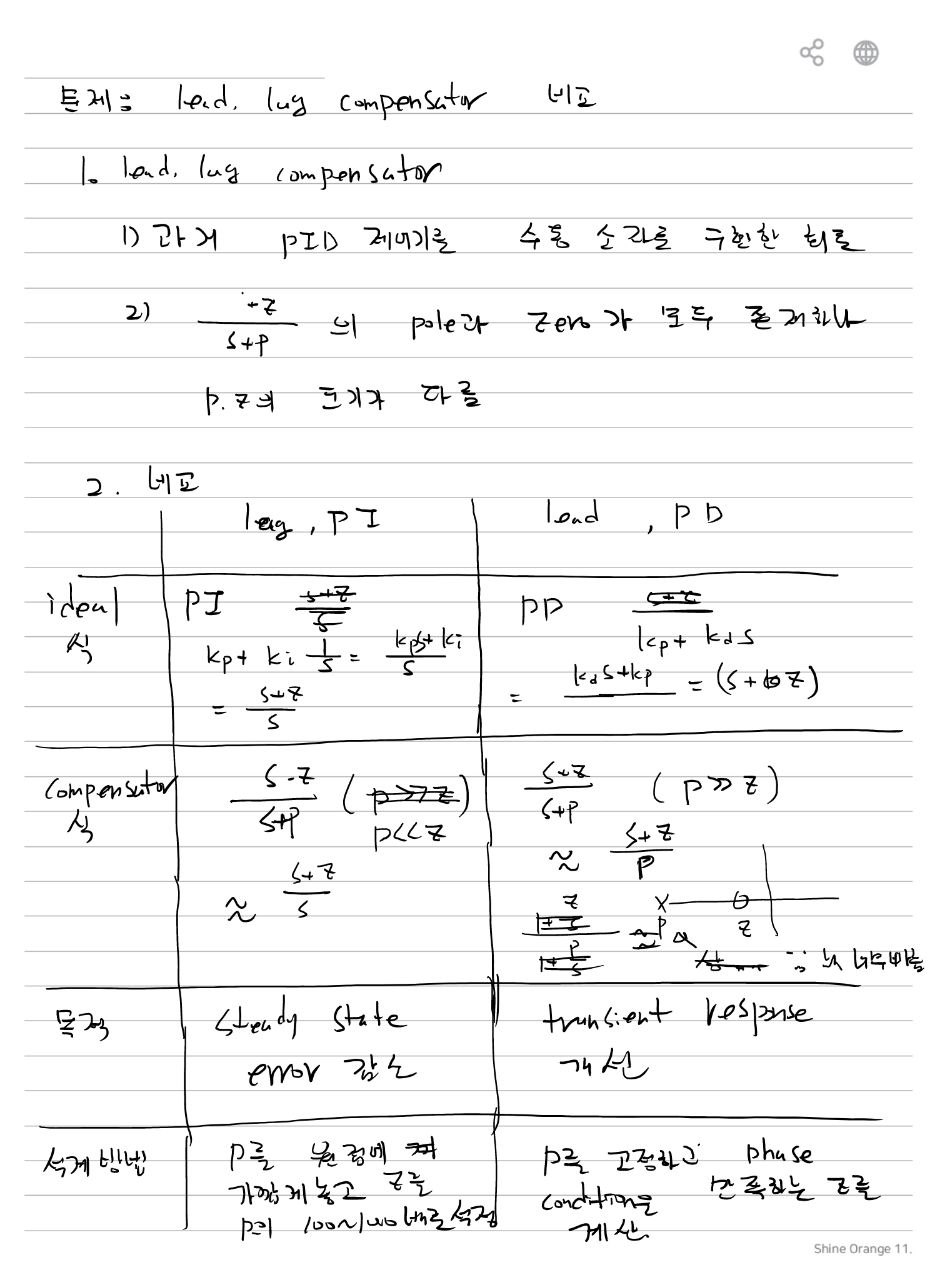 문제: lead, lag compensator 비교
1. lead, lag compensator
1) 과거 PID 제어기를 수동 소자를 구현한 회로
2) +z / s+p 의 pole과 zero가 모두 존재하나
p, z의 크기가 다름
2. 비교
lag, PI | lead, PD
ideal 식
PI s+z / s
kp + ki 1/s = kps+ki / s
= s+z / s
PD
kp + kds
= kds+kp = (s+z)
compensator 식
s-z / s+p (p>>z)
p<<z
≈ s+z / s
s+z / s+p (p>>z)
≈ s+z / p
x o
p z
목적
steady state
error 감소
transient response
개선
설계 방법
p를 원점에
가깝게 놓고 z를
p의
p를 고정하고 phase
condition을 만족하는 z를
계산
Shine Orange 11.